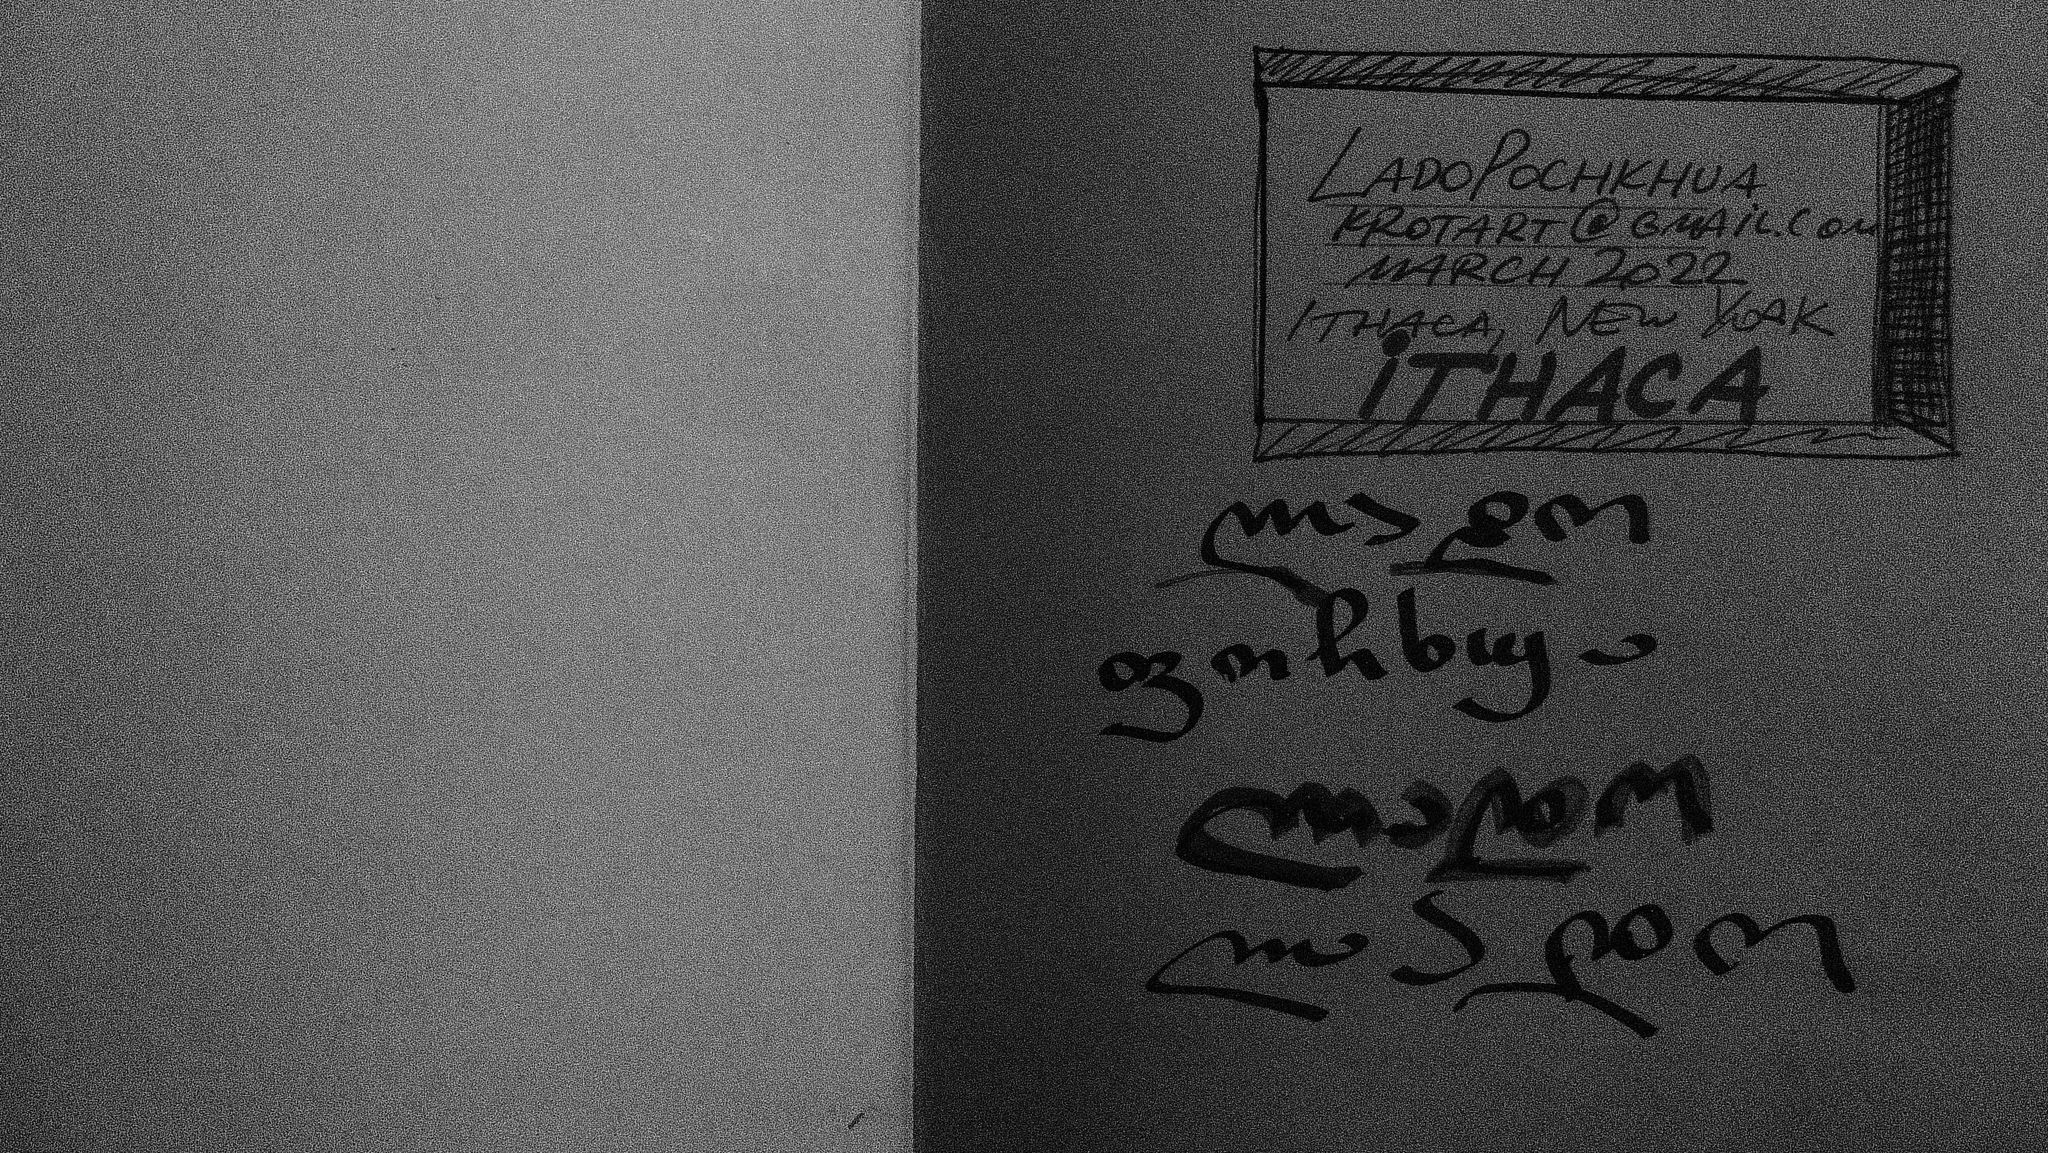 LADO POCHKHUA
KROTART@GMAIL.COM
MARCH 2022
ITHACA, NEW YORK
iTHACA
ლადო
ფოჩხუა
ლადო
ლადო